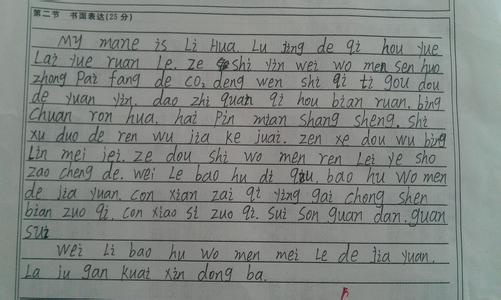 第二节 书面表达(25分)
My mane is Li Hua. Lu jing de qi hou yue
Lai yue ruan Le. ze shi yin wei wo men sen huo
zhong Pai fang de CO₂ deng wen shi qi ti gou dou
de yuan yin. dao zhi quan qi hou bian ruan. bing
chuan ron hua. hai Pin mian shang sheng. shi
xu duo de ren wu jia ke juai. zen xe dou wu bing
Lin mei jei. ze dou shi wo men ren Lei ye sho
zao cheng de. wei Le bao hu di qiu. bao hu Wo men
de jia yuan. con xian zai qi ying gai chong shen
bian zuo qi. con xiao si zuo qi. sui son guan dan. guan
sui
Wei Li bao hu Wo men mei Le de jia yuan.
La ju gan kuai xin dong ba.